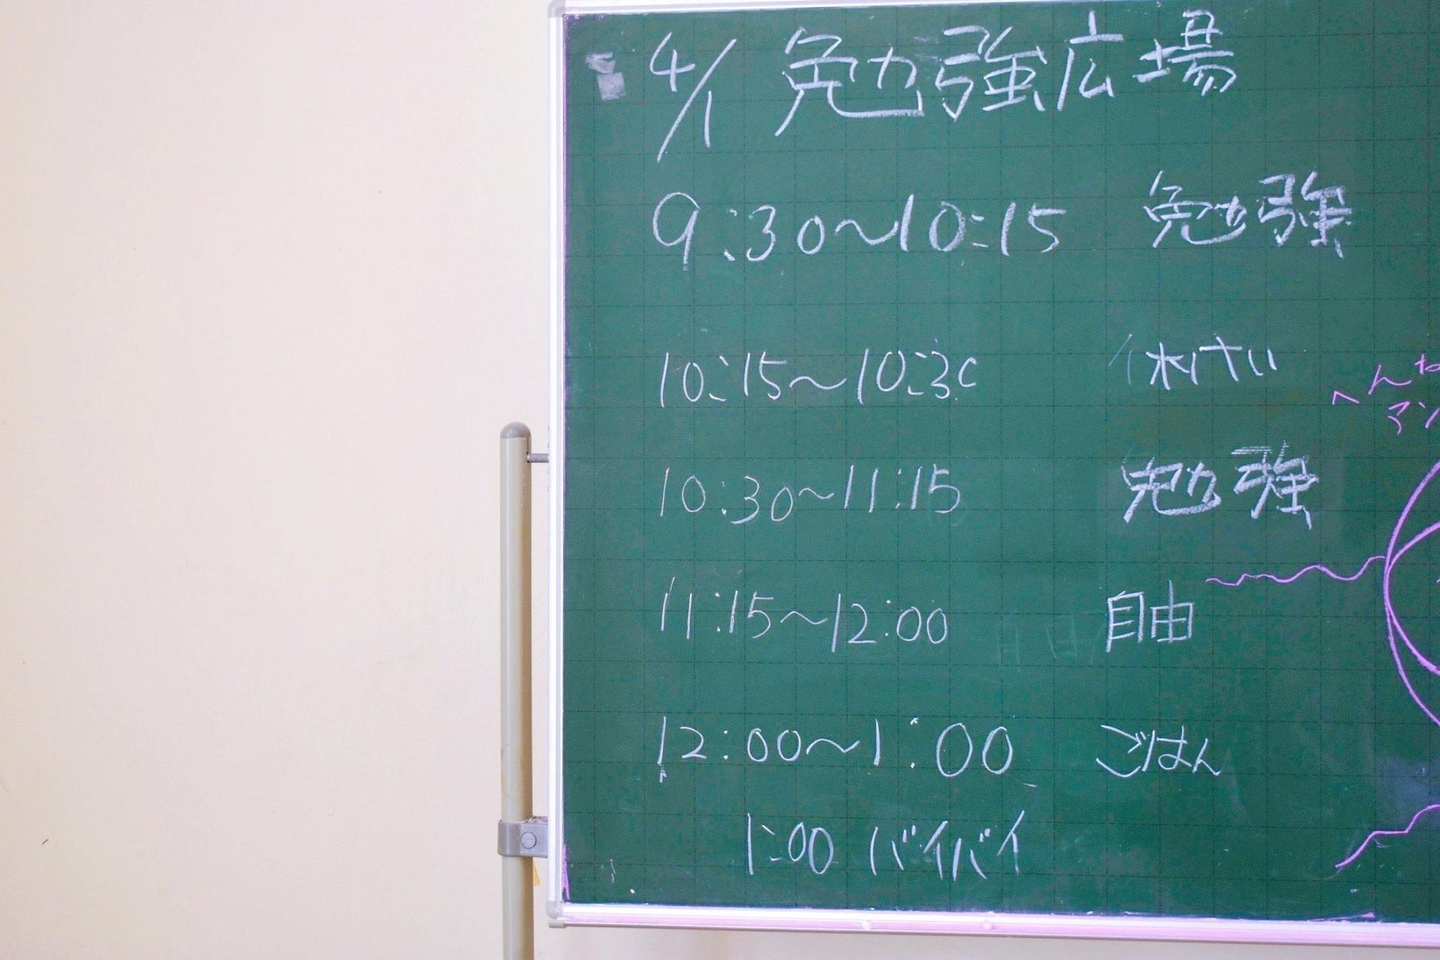 4/1 勉強広場
9:30〜10:15 勉強
10:15〜10:30 休けい
10:30〜11:15 勉強
11:15〜12:00 自由
12:00〜1:00 ごはん
1:00 バイバイ